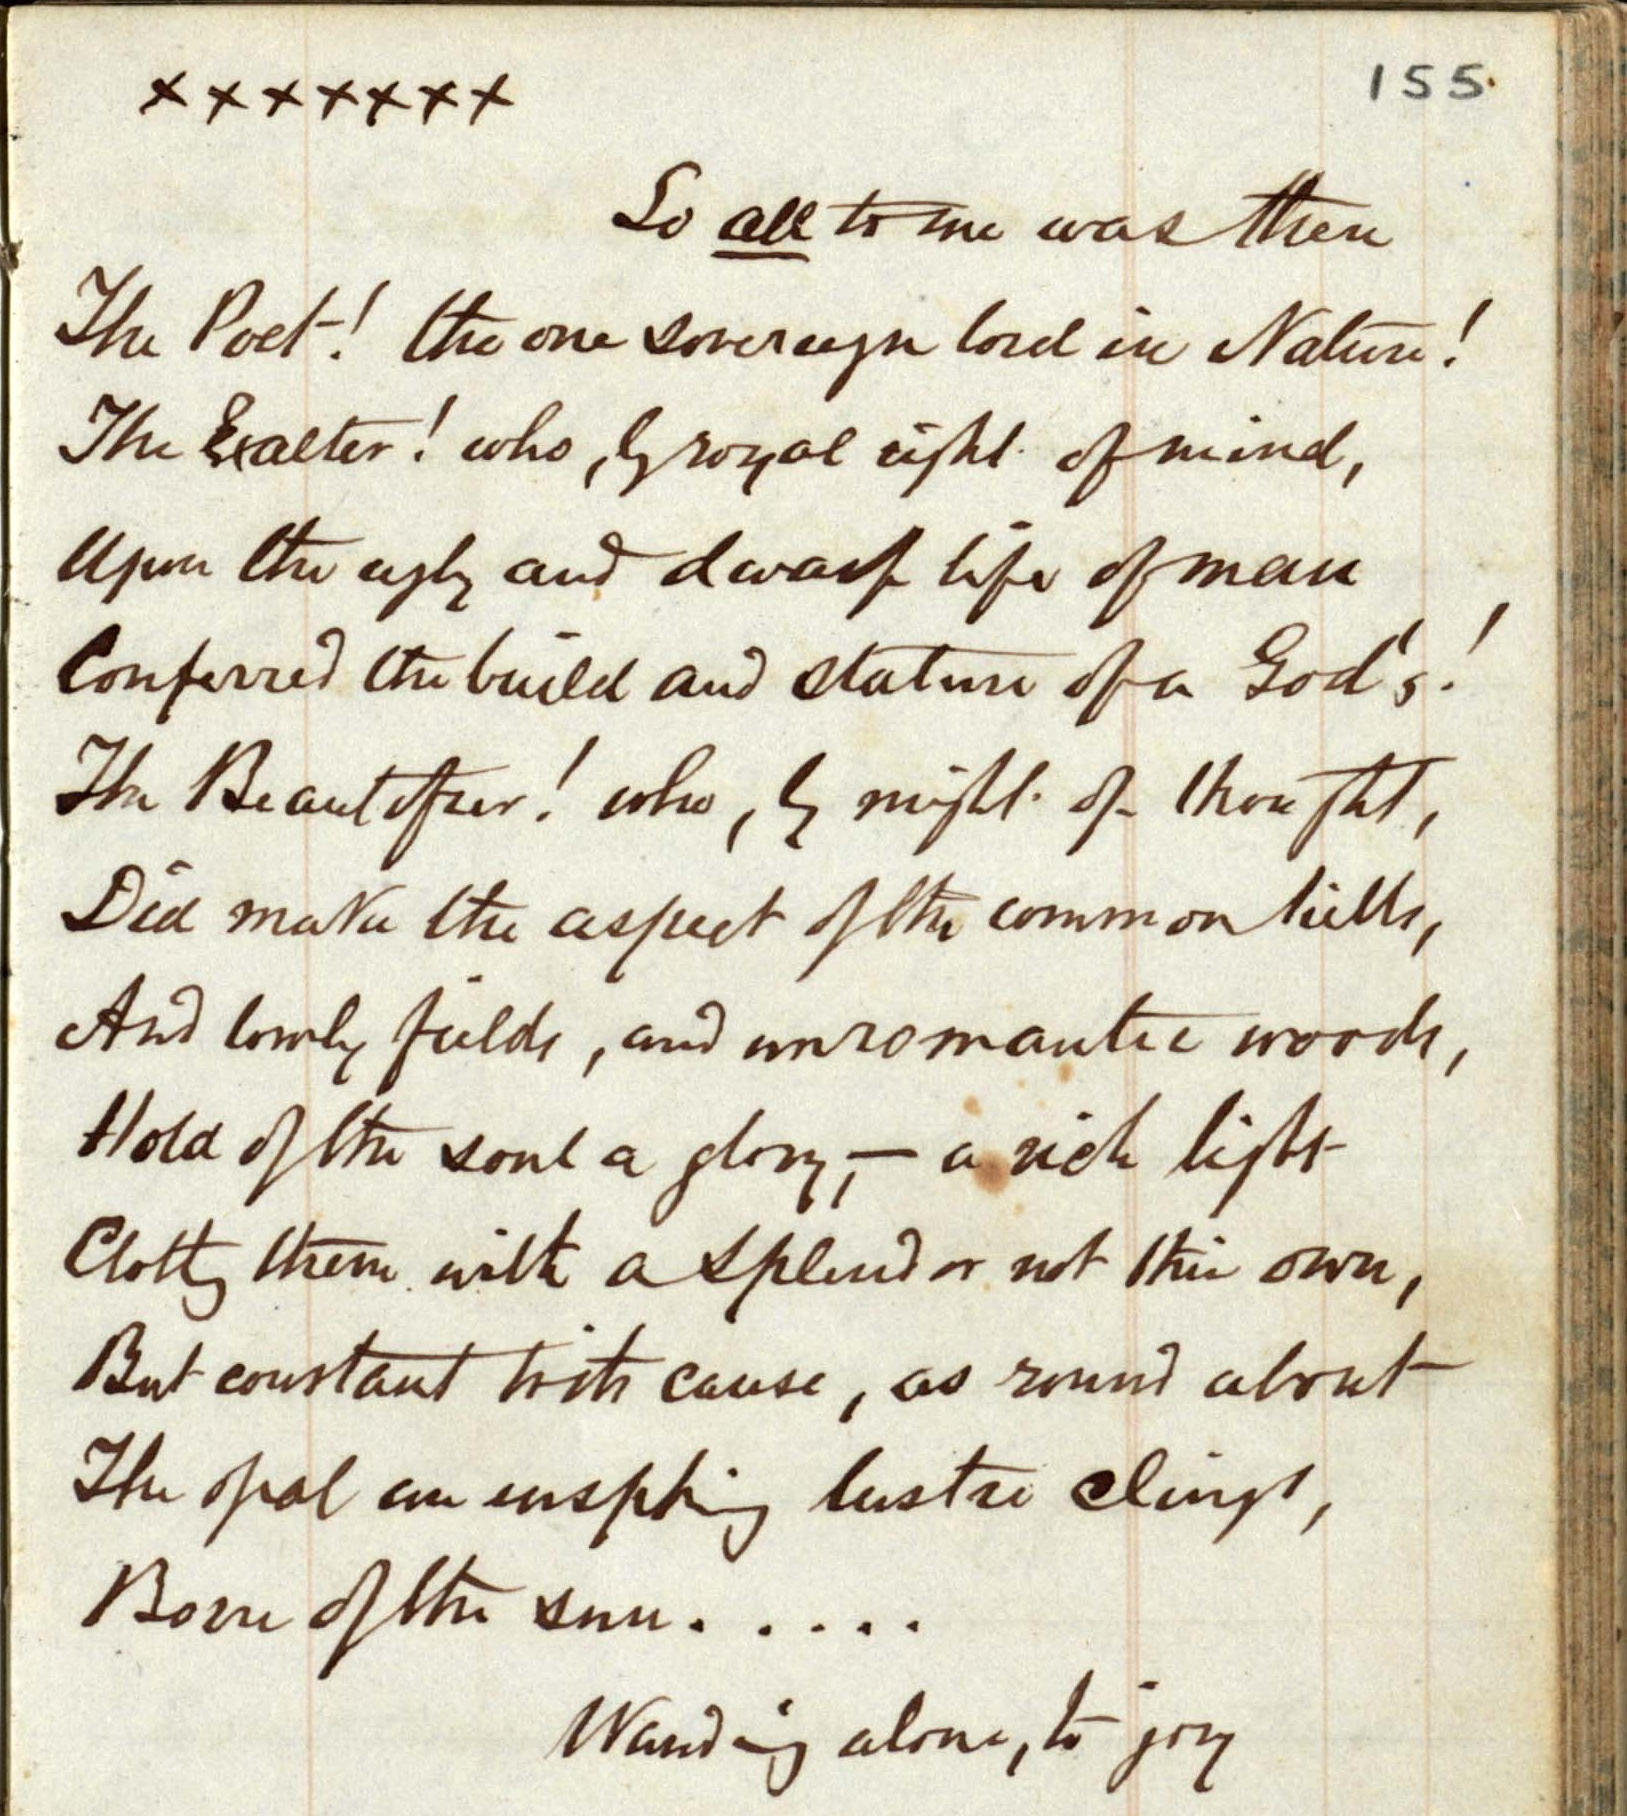 × × × × × × ×
155
So all to me was then
The Poet! the one sovereign lord in Nature!
The Exalter! who, by royal right of mind,
Upon the ugly and dwarf life of man
Conferred the build and stature of a God's!
The Beautifier! who, by might of thought,
Did make the aspect of the common hills,
And lowly fields, and unromantic woods,
Hold of the soul a glory,— a rich light
Clothg them with a splendor not their own,
But constant to its cause, as round about
The opal an lustre clings,
Born of the sun. . . . .
Wandg alone, to joy